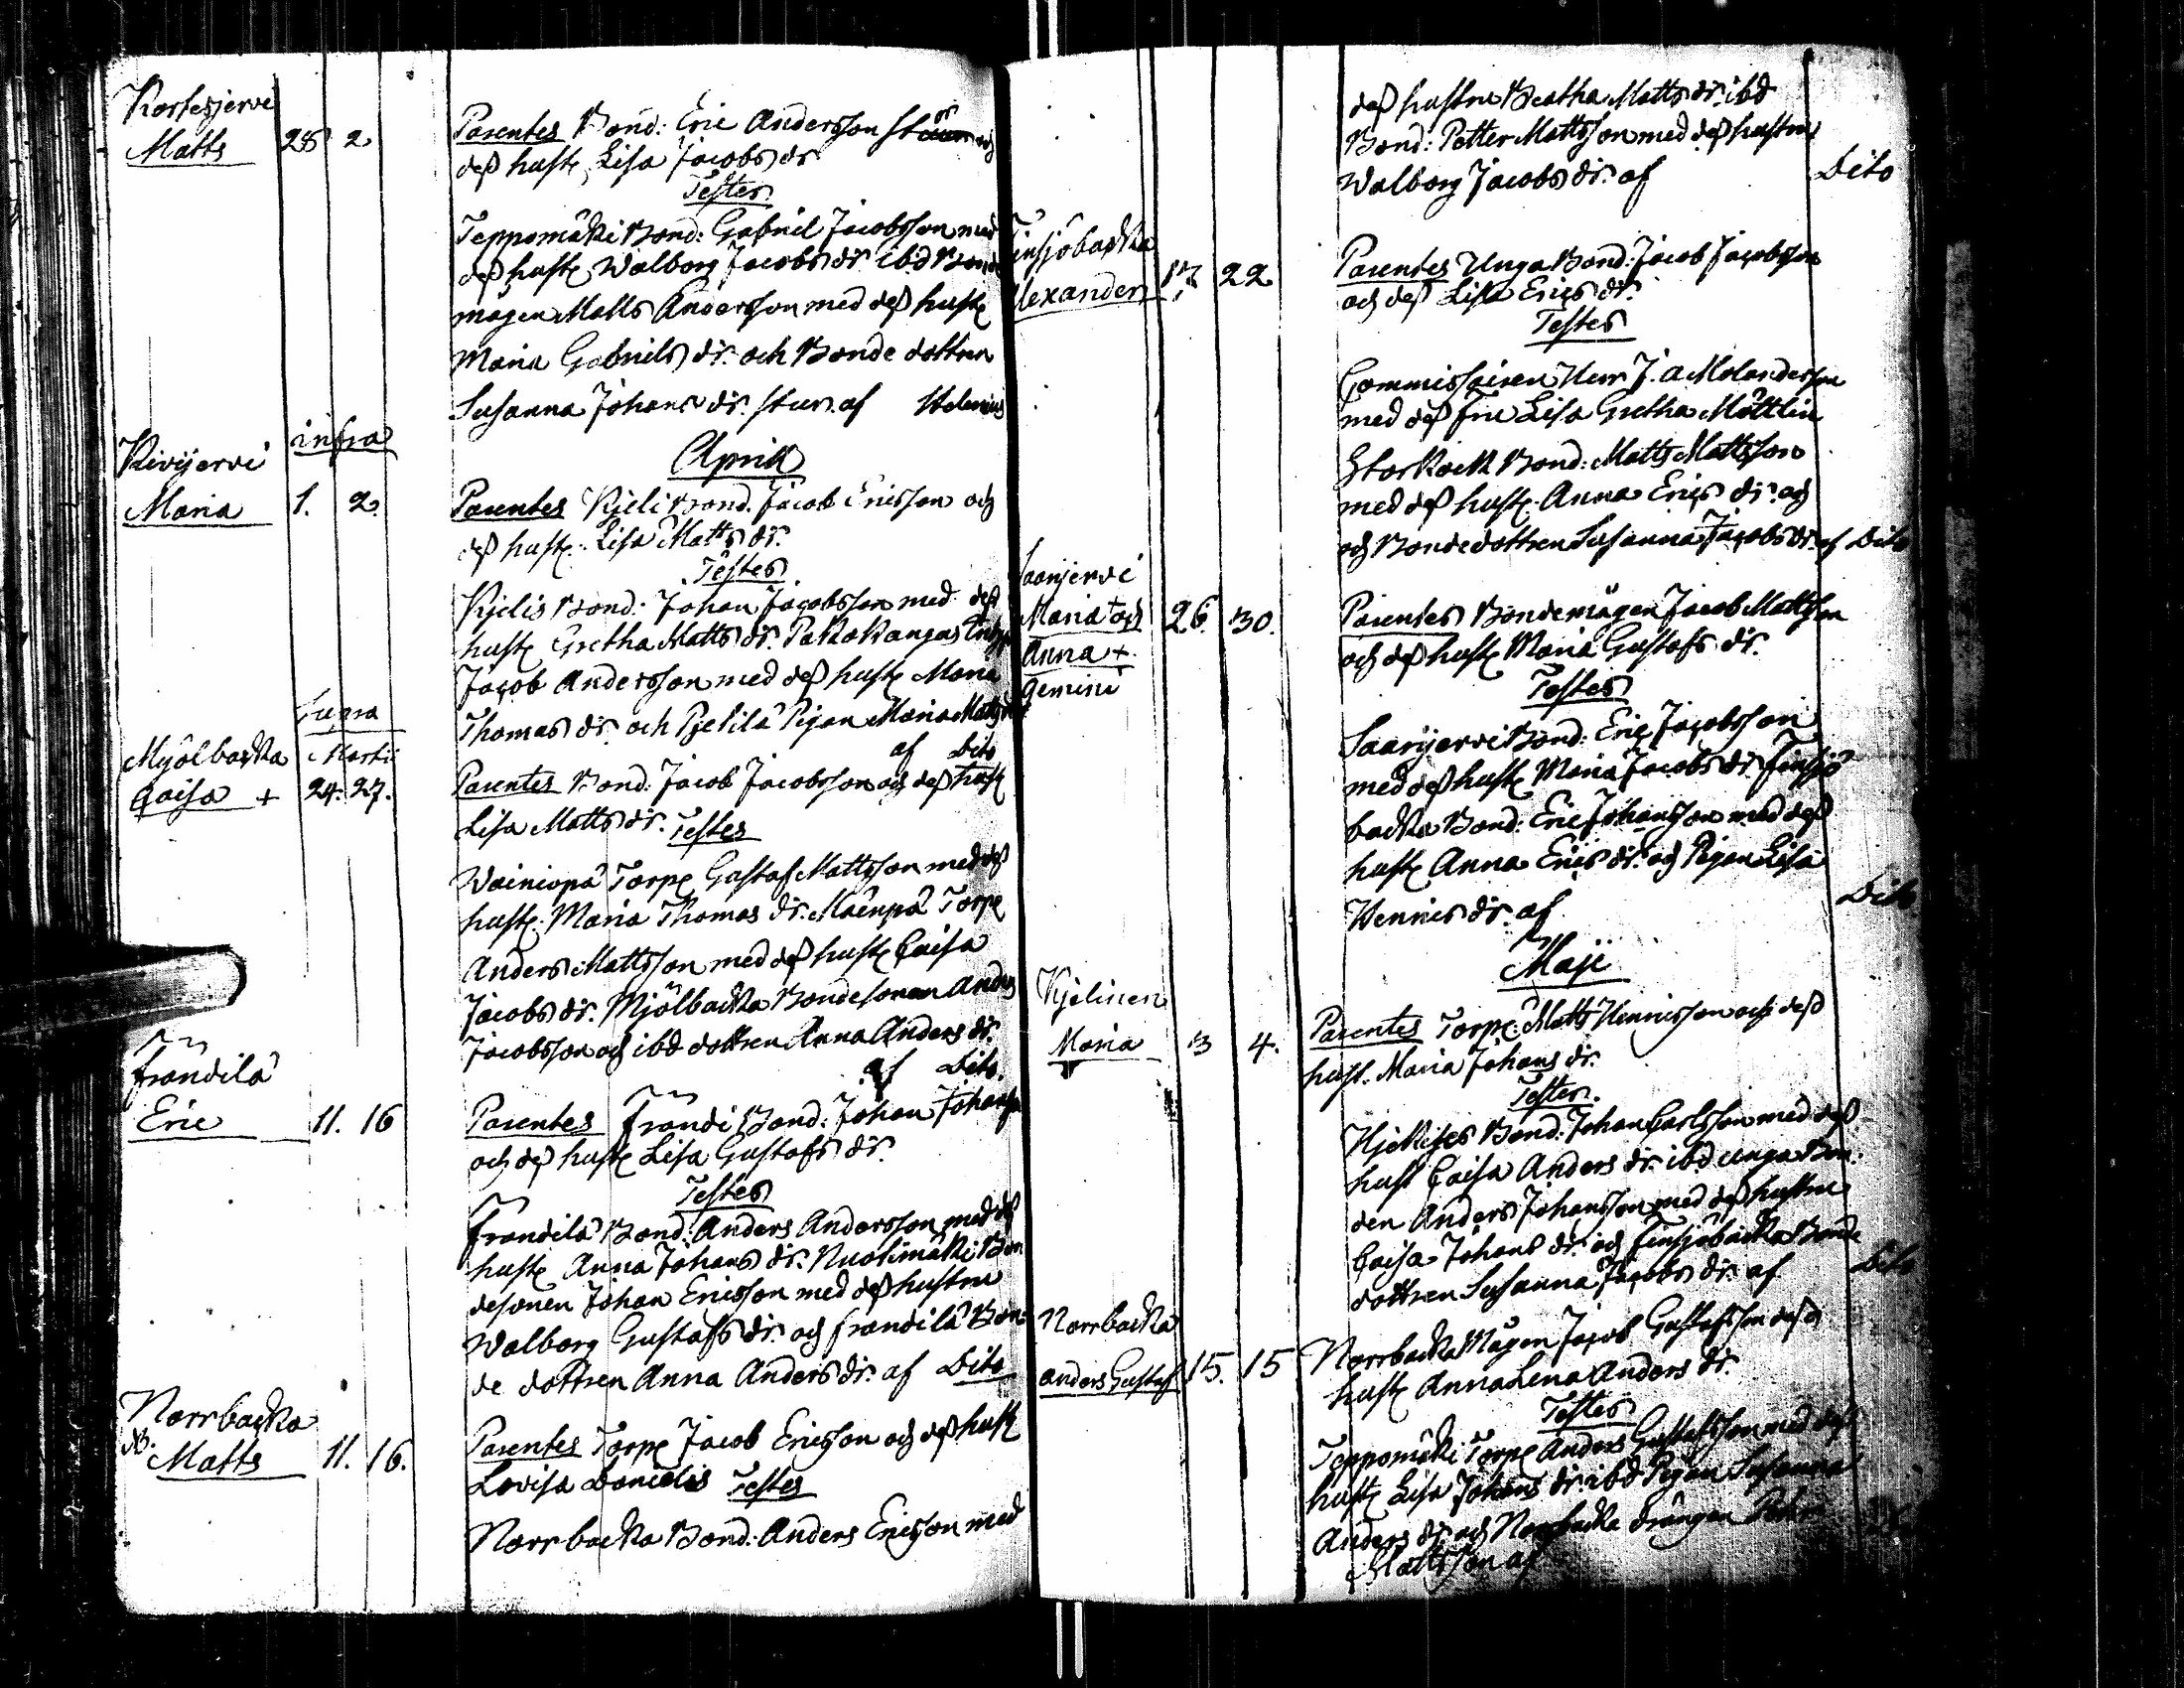 Kortesjervi
Matts 28 2
Parentes Bond: Eric Andersson och
dess hust Lisa Jacobs dr
Testes
Teppomäki Bond: Gabriel Jacobsson med
dess hust Walborg Jacobs dr ibd Bonde
mågen Matts Andersson med dess hust
Maria Gabriels dr. och Bonde dottren
Susanna Johans dr. af
infra
April
Kivijervi
Maria 1. 2.
Parentes Kjeli Bond. Jacob Ericsson och
dess hust: Lisa Matts dr.
Testes
Kjelis Bond: Johan Jacobsson med dess
hust Gretha Matts dr. Pakokangas
Jacob Andersson med dess hust Maria
Thomas dr och Pjetilä Pigan Maria Matts dr
af Dito
Supra
Mjölbacka Martii
Caisa + 24. 27.
Parentes Bond: Jacob Jacobsson och dess hust
Lisa Matts dr. Testes
Wainiopä Torp Gustaf Mattsson med dess
hust: Maria Thomas dr. Mäenpä Torp
Anders Mattsson med dess hust Caisa
Jacobs dr. Mjölbacka Bondesonen Anders
Jacobsson och ibd dottren Anna Anders dr.
af Dito.
Frändilä
Eric 11. 16
Parentes Frändi Bond: Johan Johansson
och dess hust Lisa Gustafs dr.
Testes
Frändilä Bond: Anders Andersson med dess
hust Anna Johans dr. Nuolimäki Bon
desonen Johan Ericsson med dess hustru
Walborg Gustafs dr och Frändilä Bon-
de dottren Anna Anders dr. af Dito
Norrbacka
NB. Matts 11. 16.
Parentes Torp Jacob Ericsson och dess hust
Lovisa Daniels Testes
Norrbacka Bond: Anders Ericsson med
dess hustru Beatha Matts dr. ibd
Bond: Petter Mattsson med dess hustru
Walborg Jacobs dr. af Dito
Finsjöbacka
Alexander 17. 22
Parentes Unga Bond: Jacob Jacobsson
och dess Lisa Erics dr.
Testes
Commissairen Herr J. A Molandersson
med dess Fru Lisa Gretha Möttlin
Storkock Bond: Matts Mattsson
med dess hust. Anna Erics dr. och
och Bondedottren Susanna Jacobs dr. af Dito
Saarjervi
Maria + och 26. 30.
Anna +
gemini
Parentes Bondemågen Jacob Mattsson
och dess hust Maria Gustafs dr.
Testes
Saarijervi Bond: Eric Jacobsson
med dess hust Maria Jacobs dr. Finsjö
backa Bond: Eric Johansson med dess
hust Anna Erics dr. och Pigan Lisa
Hennies dr. af Dito
Maji
Kjelinen
Maria 3 4.
Parentes Torp: Matts Hennisson och dess
hust. Maria Johans dr.
Testes.
Bond: Johan Carlsson med dess
hust Caisa Anders dr. ibd unga Bon-
den Anders Johansson med dess hustru
Caisa Johans dr och Finsjöbacka Bonde
dottren Susanna Jacobs dr. af Dito
Norrbacka
Anders Gustaf 15. 15
Norrbacka Mågen Jacob Gustafsson dess
hust Anna Lena Anders dr.
Testes
Teppomäki Torp Anders Gustafsson med dess
hust Lisa Johans dr. ibd Pigan Susanna
Anders dr och Norrbacka drängen
Mattsson af